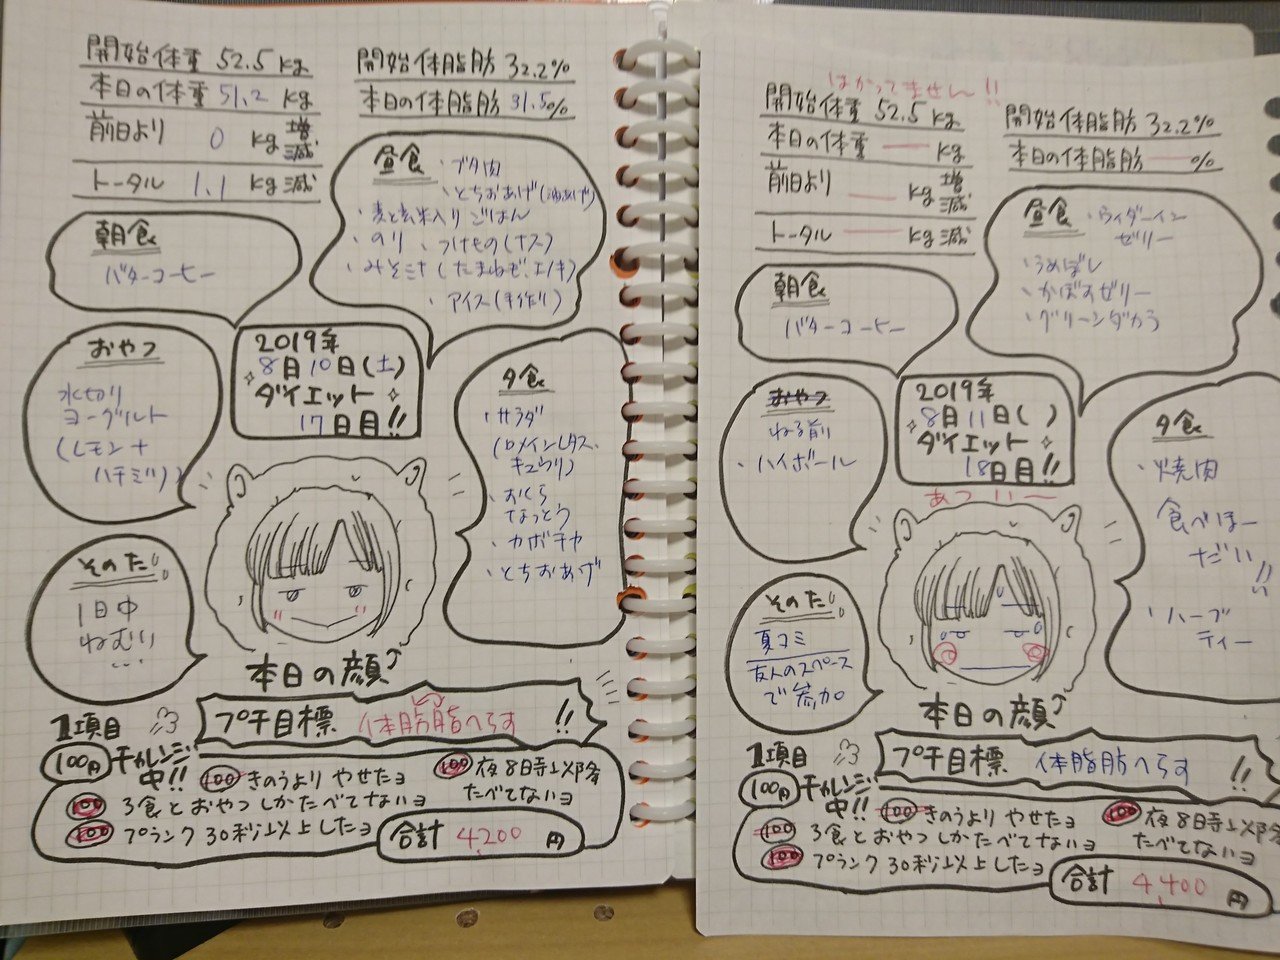 開始体重 52.5 kg
本日の体重 51.2 kg
前日より 0 kg 増減
トータル 1.1 kg 減
開始体脂肪 32.2%
本日の体脂肪 31.5%
朝食
バターコーヒー
昼食 ・ブタ肉
・とちおあげ(油あげ)
・麦と玄米入りごはん
・のり ・つけもの(ナス)
・みそ汁(たまねぎ、エノキ)
・アイス(手作り)
おやつ
水切り
ヨーグルト
(レモン+
ハチミツ)
2019年
8月10日(土)
ダイエット
17日目!!
夕食
・サラダ
(ロメインレタス、
キュウリ)
・おくら
なっとう
・カボチャ
・とちおあげ
そのた
1日中
ねむい
…
本日の顔
プチ目標 体肪脂へらす !!
1項目
100円 チャレンジ中!!
100 きのうより やせたヨ
100 夜8時以降たべてないヨ
100 3食とおやつしかたべてないヨ
100 プランク30秒以上したヨ
合計 4,200 円
はかってませーん!!
開始体重 52.5 kg
本日の体重 — kg
前日より — kg 増減
トータル — kg 減
開始体脂肪 32.2%
本日の体脂肪 — %
朝食
バターコーヒー
昼食 ・ウィダーイン
ゼリー
・うめぼし
・かぼすゼリー
・グリーンダカラ
おやつ
ねる前
・ハイボール
2019年
8月11日( )
ダイエット
18日目!!
あつい〜
夕食
・焼肉
食べほー
だい!!
・ハーブ
ティー
そのた
夏コミ
友人のスペース
で参加
本日の顔
プチ目標 体脂肪へらす !!
1項目
100円 チャレンジ中!!
100 きのうより やせたヨ
100 夜8時以降たべてないヨ
100 3食とおやつしかたべてないヨ
100 プランク30秒以上したヨ
合計 4,400 円